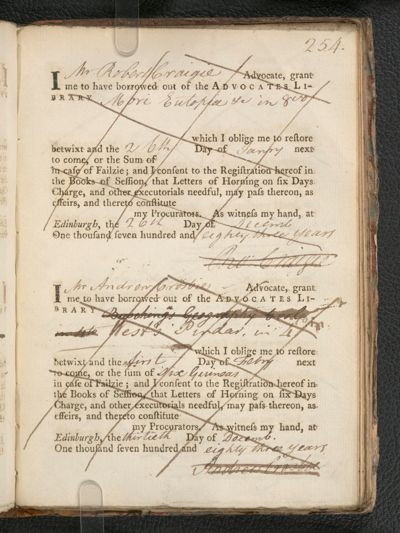 254.
I Mr Robert Craigie Advocate, grant
me to have borrowed out of the ADVOCATES LI-
BRARY Mori Eutopia &c in 8vo
which I oblige me to reſtore
betwixt and the 26th Day of Janry next
to come, or the Sum of
in caſe of Failzie; and I conſent to the Regiſtration hereof in
the Books of Seſſion, that Letters of Horning on ſix Days
Charge, and other executorials needful, may paſs thereon, as
effeirs, and thereto conſtitute
my Procurators. As witneſs my hand, at
Edinburgh, the 26th Day of Decemb.
One thouſand ſeven hundred and eighty three years
Robt Craigie
I Mr Andrew Crosbie Advocate, grant
me to have borrowed out of the ADVOCATES LI-
BRARY Geography
West's Pindar, in 4to
which I oblige me to reſtore
betwixt and the first Day of Febry next
to come, or the ſum of Six Guineas
in caſe of Failzie; and I conſent to the Regiſtration hereof in
the Books of Seſſion, that Letters of Horning on ſix Days
Charge, and other executorials needful, may paſs thereon, as
effeirs, and thereto conſtitute
my Procurators. As witneſs my hand, at
Edinburgh, the thirtieth Day of Decemb.
One thouſand ſeven hundred and eighty three years
Andrew Crosbie